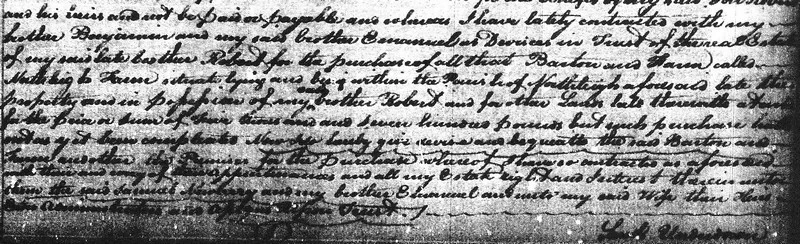 and his heirs and not be paid or payable and whereas I have lately contracted with my
brother Benjamin and my said brother Emanuel as Devisees in Trust of the real Estate
of my said late brother Robert for the purchase of all that Barton and Farm called
Farm situate lying and being within the Parish of Northleigh aforesaid late the
property and in possession of my said brother Robert and for other Lands late
for the price or sum of four thousand and seven hundred pounds but such purchase
not as yet been completed Now I do hereby give devise and bequeath the said Barton and
Farm and other the Premises for the purchase whereof I have so contracted as aforesaid
with their and every of their Appurtenances and all my Estate right and Interest therein unto
them the said Samuel and my brother Emanuel and unto my said Wife their Heirs
Trust